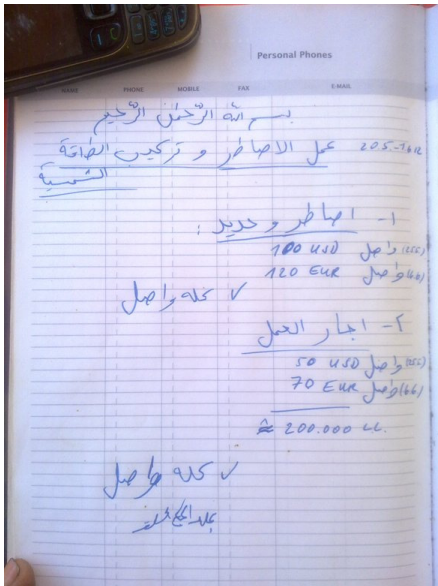 Personal Phones
NAME PHONE MOBILE FAX E-MAIL
بسم الله الرحمن الرحيم
عمل الاصاطر و تركيب الطاقة
الشمسية
١- اصاطر و حديد :
واصل 100 USD
واصل 120 EUR
✓ كله واصل
٢- اجار العمل
واصل 50 USD
واصل 70 EUR (66)
≈ 200.000 LL.
✓ كله واصل